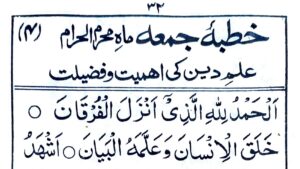 ۳۲
خطبۂ جمعہ ماہِ محرم الحرام (۴)
علمِ دین کی اہمیت و فضیلت
اَلْحَمْدُ لِلّٰہِ الَّذِیْٓ اَنْزَلَ الْفُرْقَانَ ○
خَلَقَ الْاِنْسَانَ وَعَلَّمَهُ الْبَيَانَ ○ اَشْهَدُ